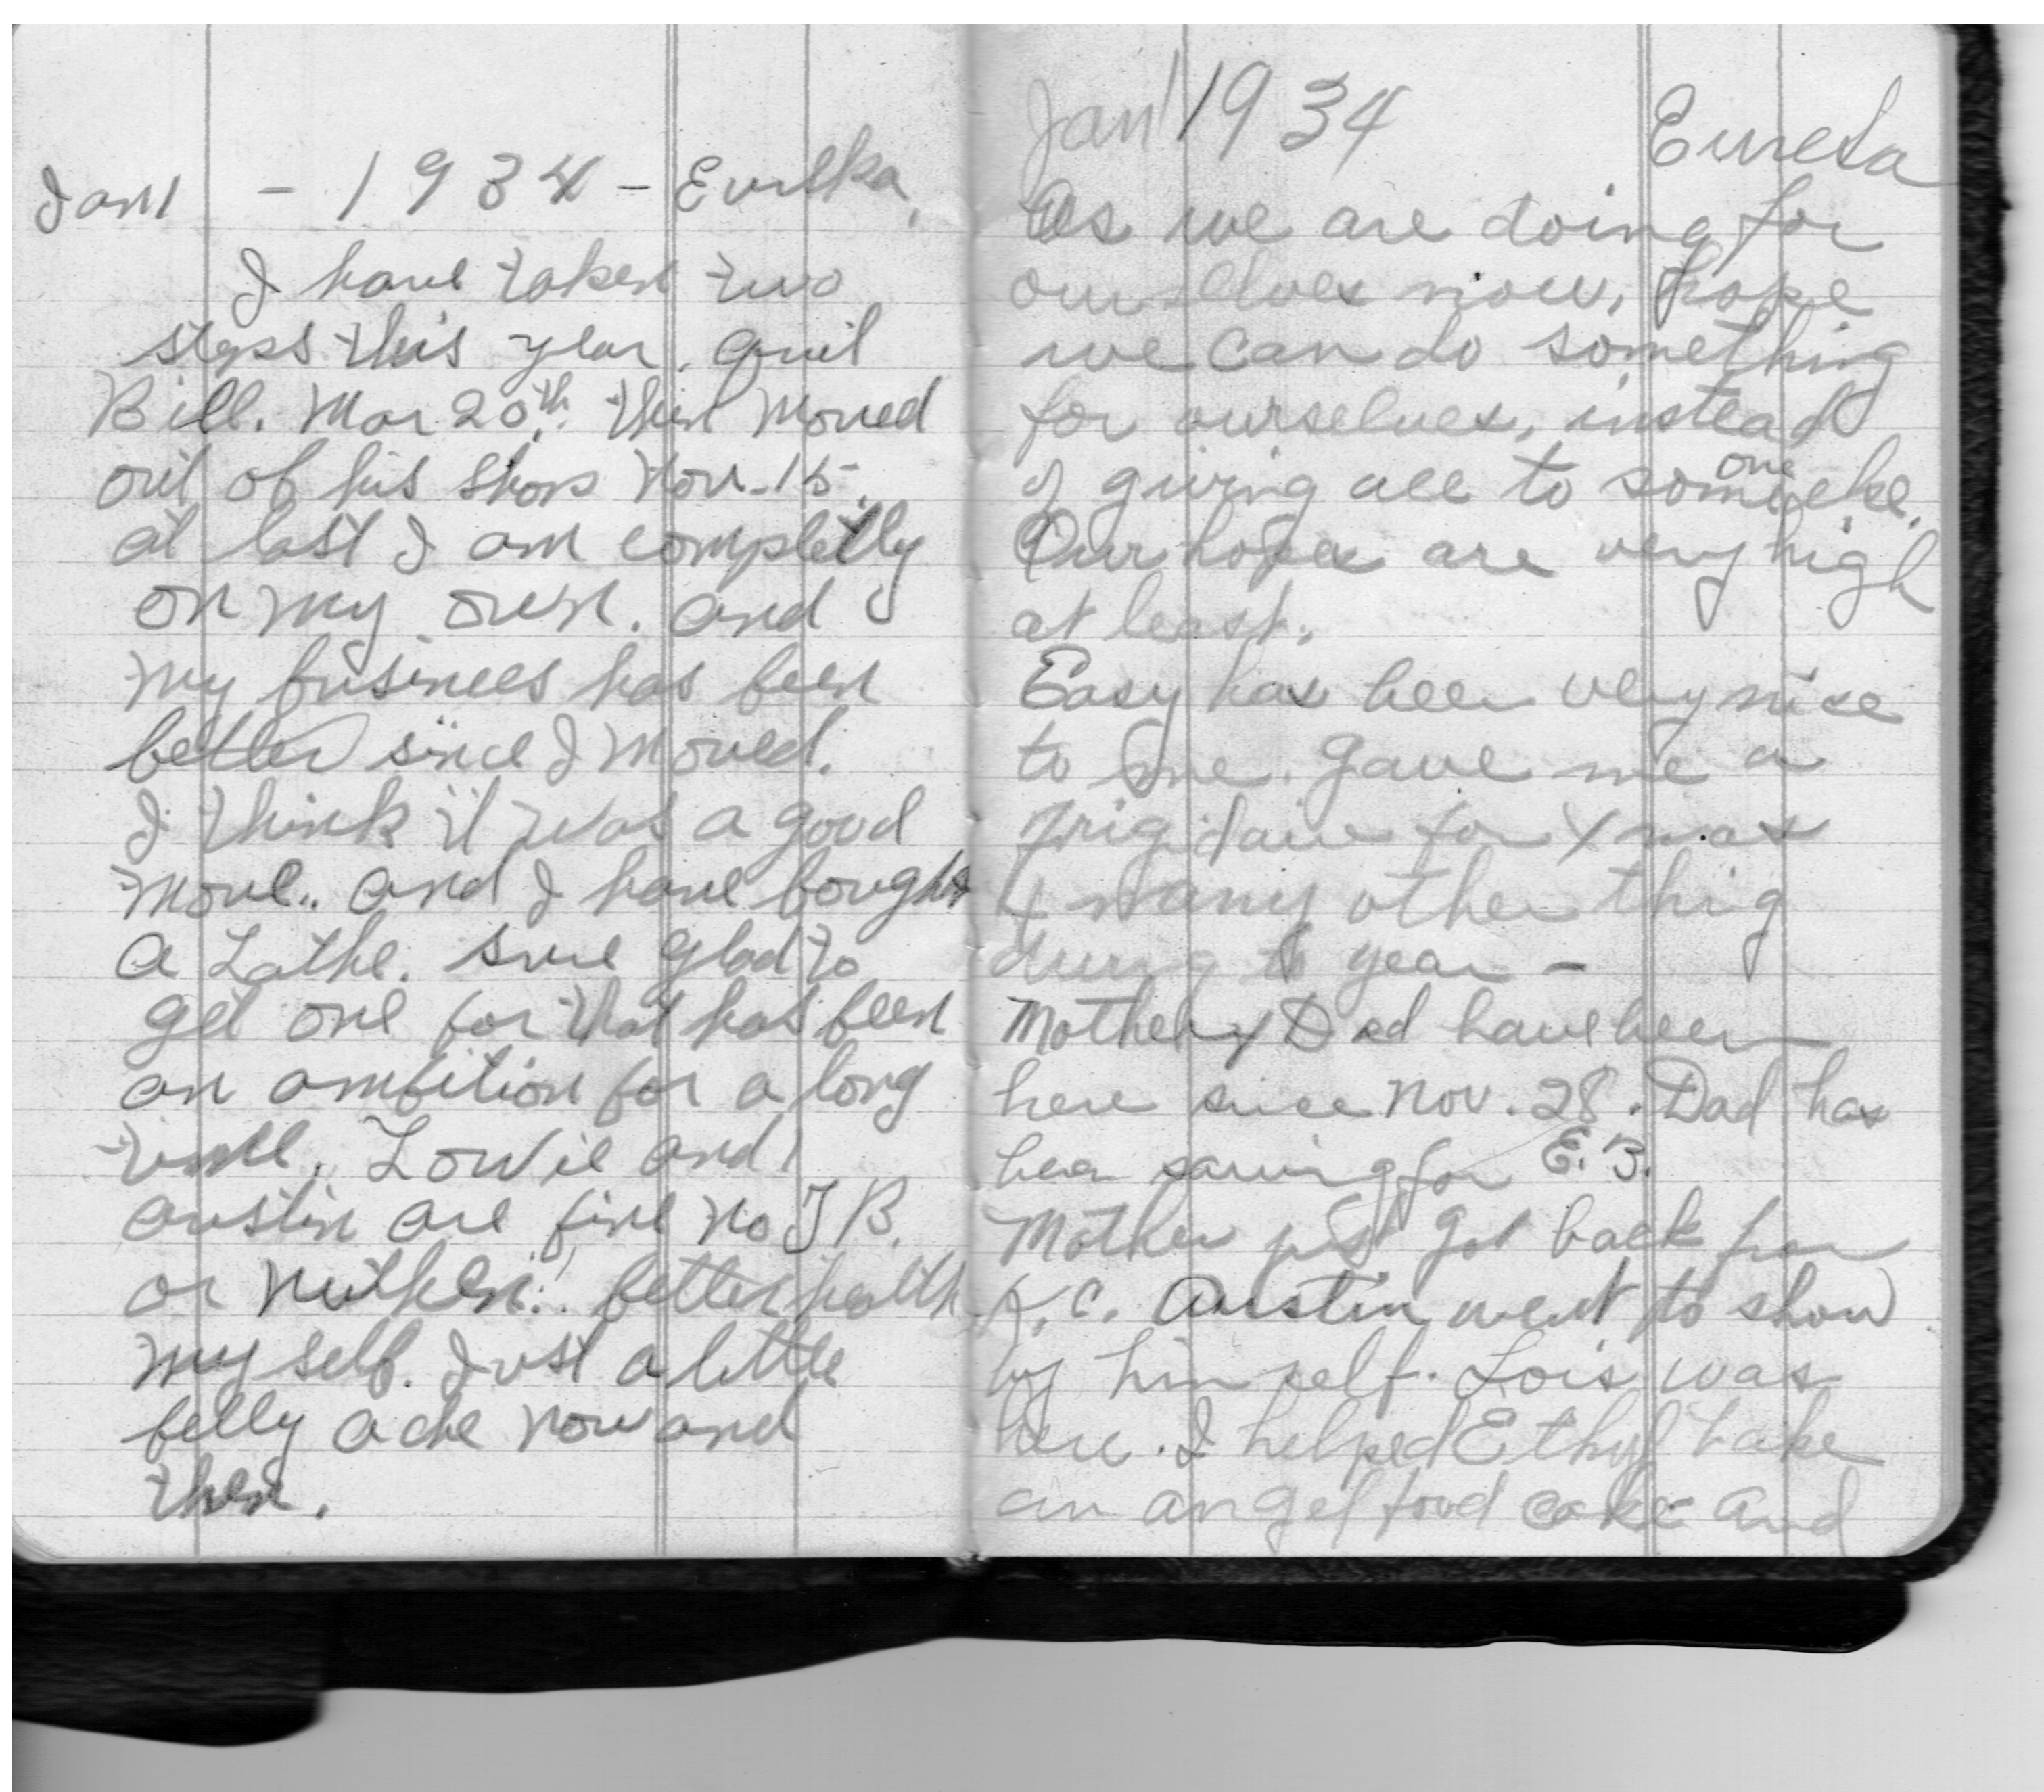 Jan 1 - 1934 - Eureka,
I have taken two
steps this year. quit
Bill. Mar 20th. then moved
out of his shop Nov-15.
at last I am completly
on my own. and
my businees has been
better since I moved.
I think it was a good
move.. and I have bought
a Lathe. sure glad to
get one for that has been
an ambition for a long
time. Lowie and
austin are fine no TB.
or nuthen.. better health
my self. Just a little
belly ache now and
then.
Jan 1 1934 Eureka
As we are doing for
ourselves now, hope
we can do something
for ourselves, instead
of giving all to some one else.
Our hopes are very high
at least.
Easy has been very nice
to me. Gave me a
frigidaire for Xmas
& many other thig
during th year -
Mother & Dad have been
here since Nov. 28. Dad has
been sawing for E.B.
Mother just got back from
K.C. Austin went to show
by himself. Lois was
here. I helped Ethyl bake
an angel food cake and